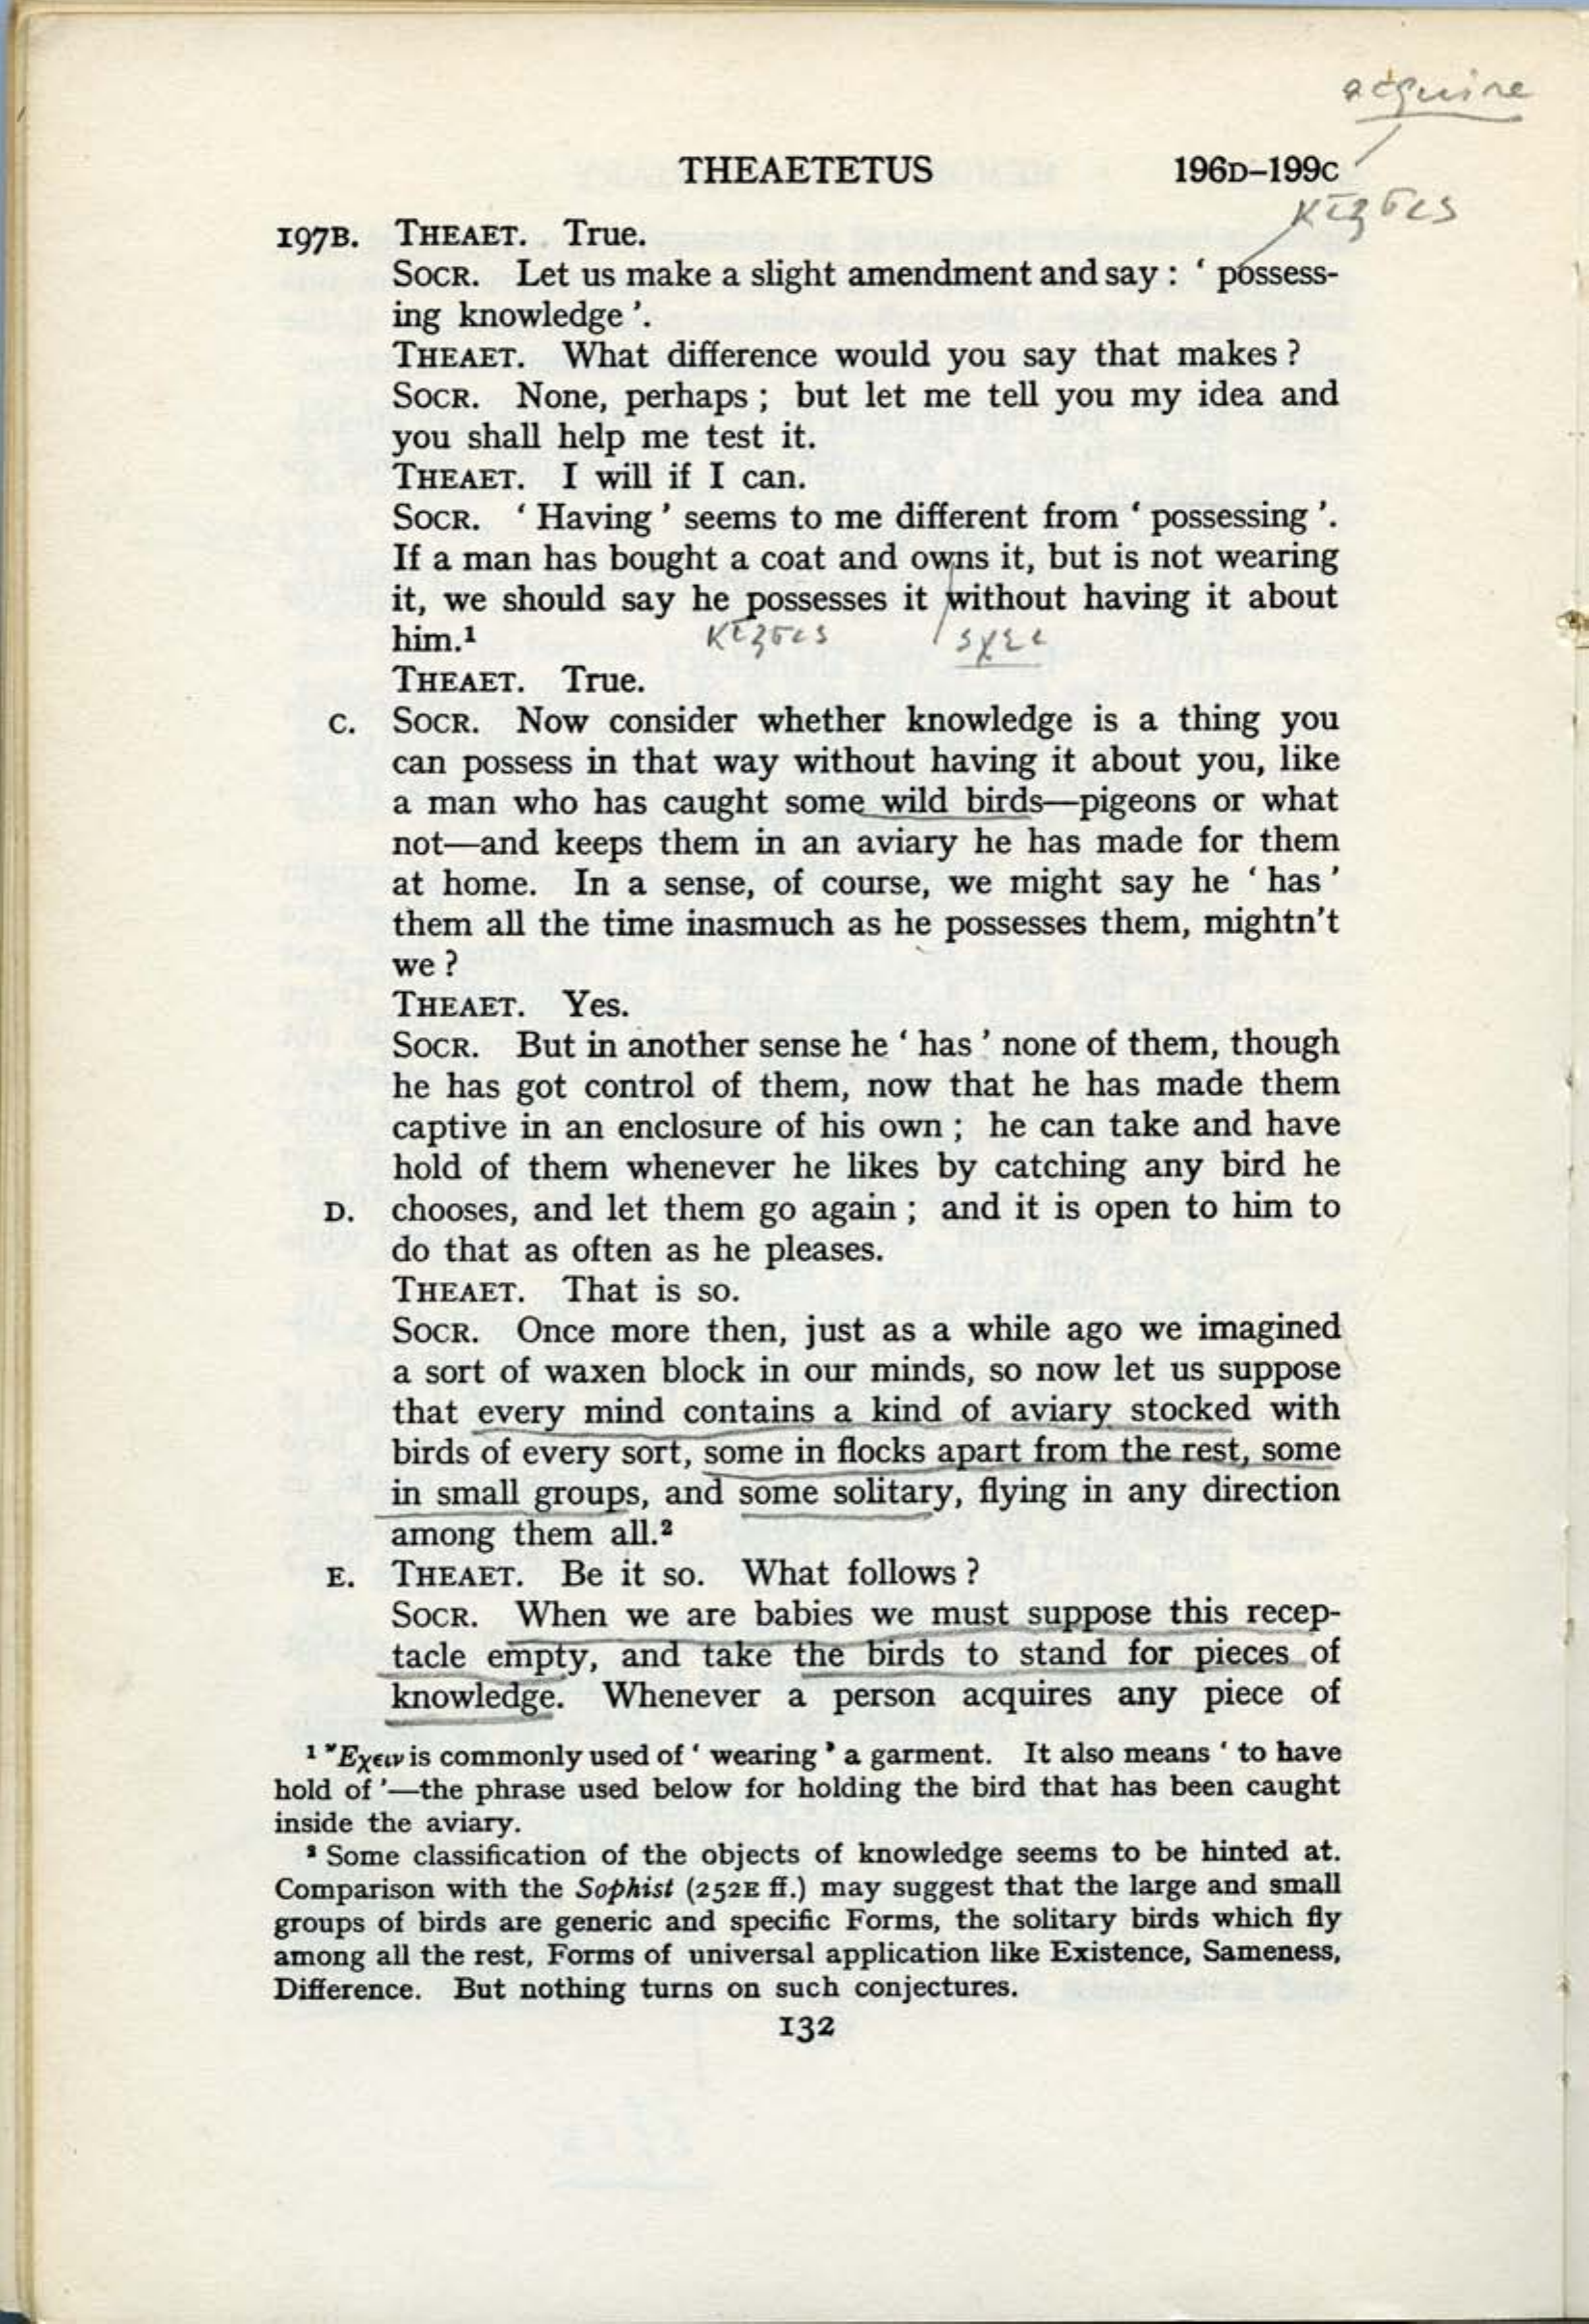 acquire
THEAETETUS 196D–199C
197B. THEAET. True.
SOCR. Let us make a slight amendment and say : ‘ possess-
ing knowledge ’.
THEAET. What difference would you say that makes ?
SOCR. None, perhaps ; but let me tell you my idea and
you shall help me test it.
THEAET. I will if I can.
SOCR. ‘ Having ’ seems to me different from ‘ possessing ’.
If a man has bought a coat and owns it, but is not wearing
it, we should say he possesses it without having it about
him.¹
THEAET. True.
C. SOCR. Now consider whether knowledge is a thing you
can possess in that way without having it about you, like
a man who has caught some wild birds—pigeons or what
not—and keeps them in an aviary he has made for them
at home. In a sense, of course, we might say he ‘ has ’
them all the time inasmuch as he possesses them, mightn't
we ?
THEAET. Yes.
SOCR. But in another sense he ‘ has ’ none of them, though
he has got control of them, now that he has made them
captive in an enclosure of his own ; he can take and have
hold of them whenever he likes by catching any bird he
D. chooses, and let them go again ; and it is open to him to
do that as often as he pleases.
THEAET. That is so.
SOCR. Once more then, just as a while ago we imagined
a sort of waxen block in our minds, so now let us suppose
that every mind contains a kind of aviary stocked with
birds of every sort, some in flocks apart from the rest, some
in small groups, and some solitary, flying in any direction
among them all.²
E. THEAET. Be it so. What follows ?
SOCR. When we are babies we must suppose this recep-
tacle empty, and take the birds to stand for pieces of
knowledge. Whenever a person acquires any piece of
¹ Ἔχειν is commonly used of ‘ wearing ’ a garment. It also means ‘ to have
hold of ’—the phrase used below for holding the bird that has been caught
inside the aviary.
² Some classification of the objects of knowledge seems to be hinted at.
Comparison with the Sophist (252E ff.) may suggest that the large and small
groups of birds are generic and specific Forms, the solitary birds which fly
among all the rest, Forms of universal application like Existence, Sameness,
Difference. But nothing turns on such conjectures.
132